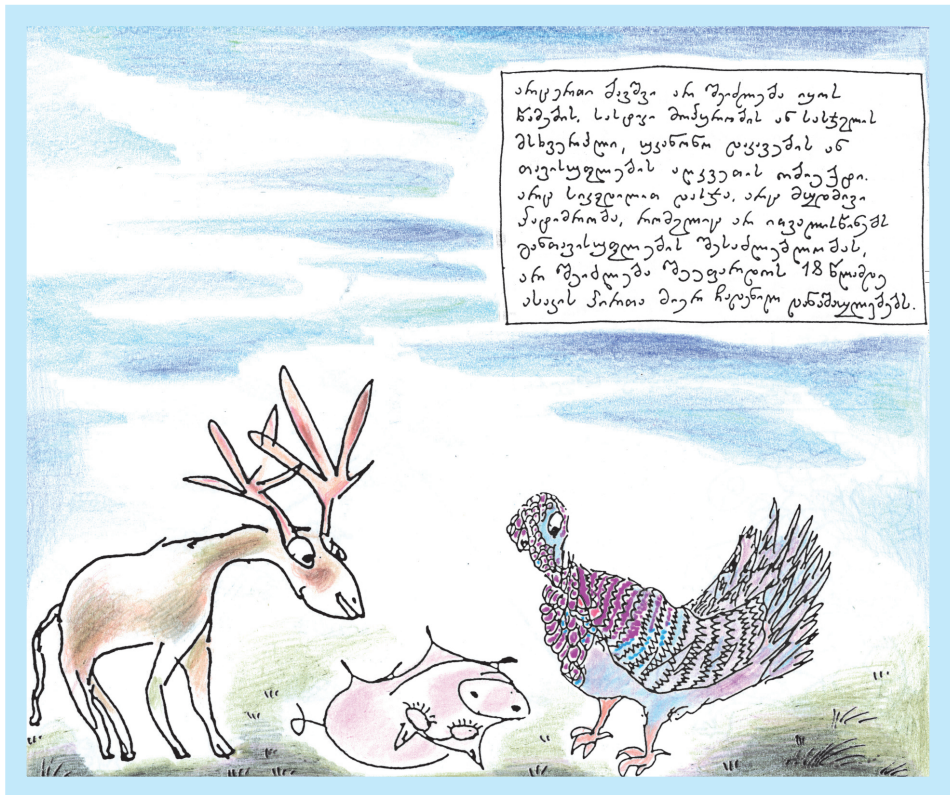 არცერთი ბავშვი არ შეიძლება იყოს
წამების, სასტიკი მოპყრობის ან სასჯელის
მსხვერპლი, უკანონო დაკავების ან
თავისუფლების აღკვეთის ობიექტი.
არც სიკვდილით დასჯა, არც მუდმივი
პატიმრობა, რომელიც არ ითვალისწინებს
განთავისუფლების შესაძლებლობას,
არ შეიძლება შეეფარდოს 18 წლამდე
ასაკის პირთა მიერ ჩადენილ დანაშაულებებს.